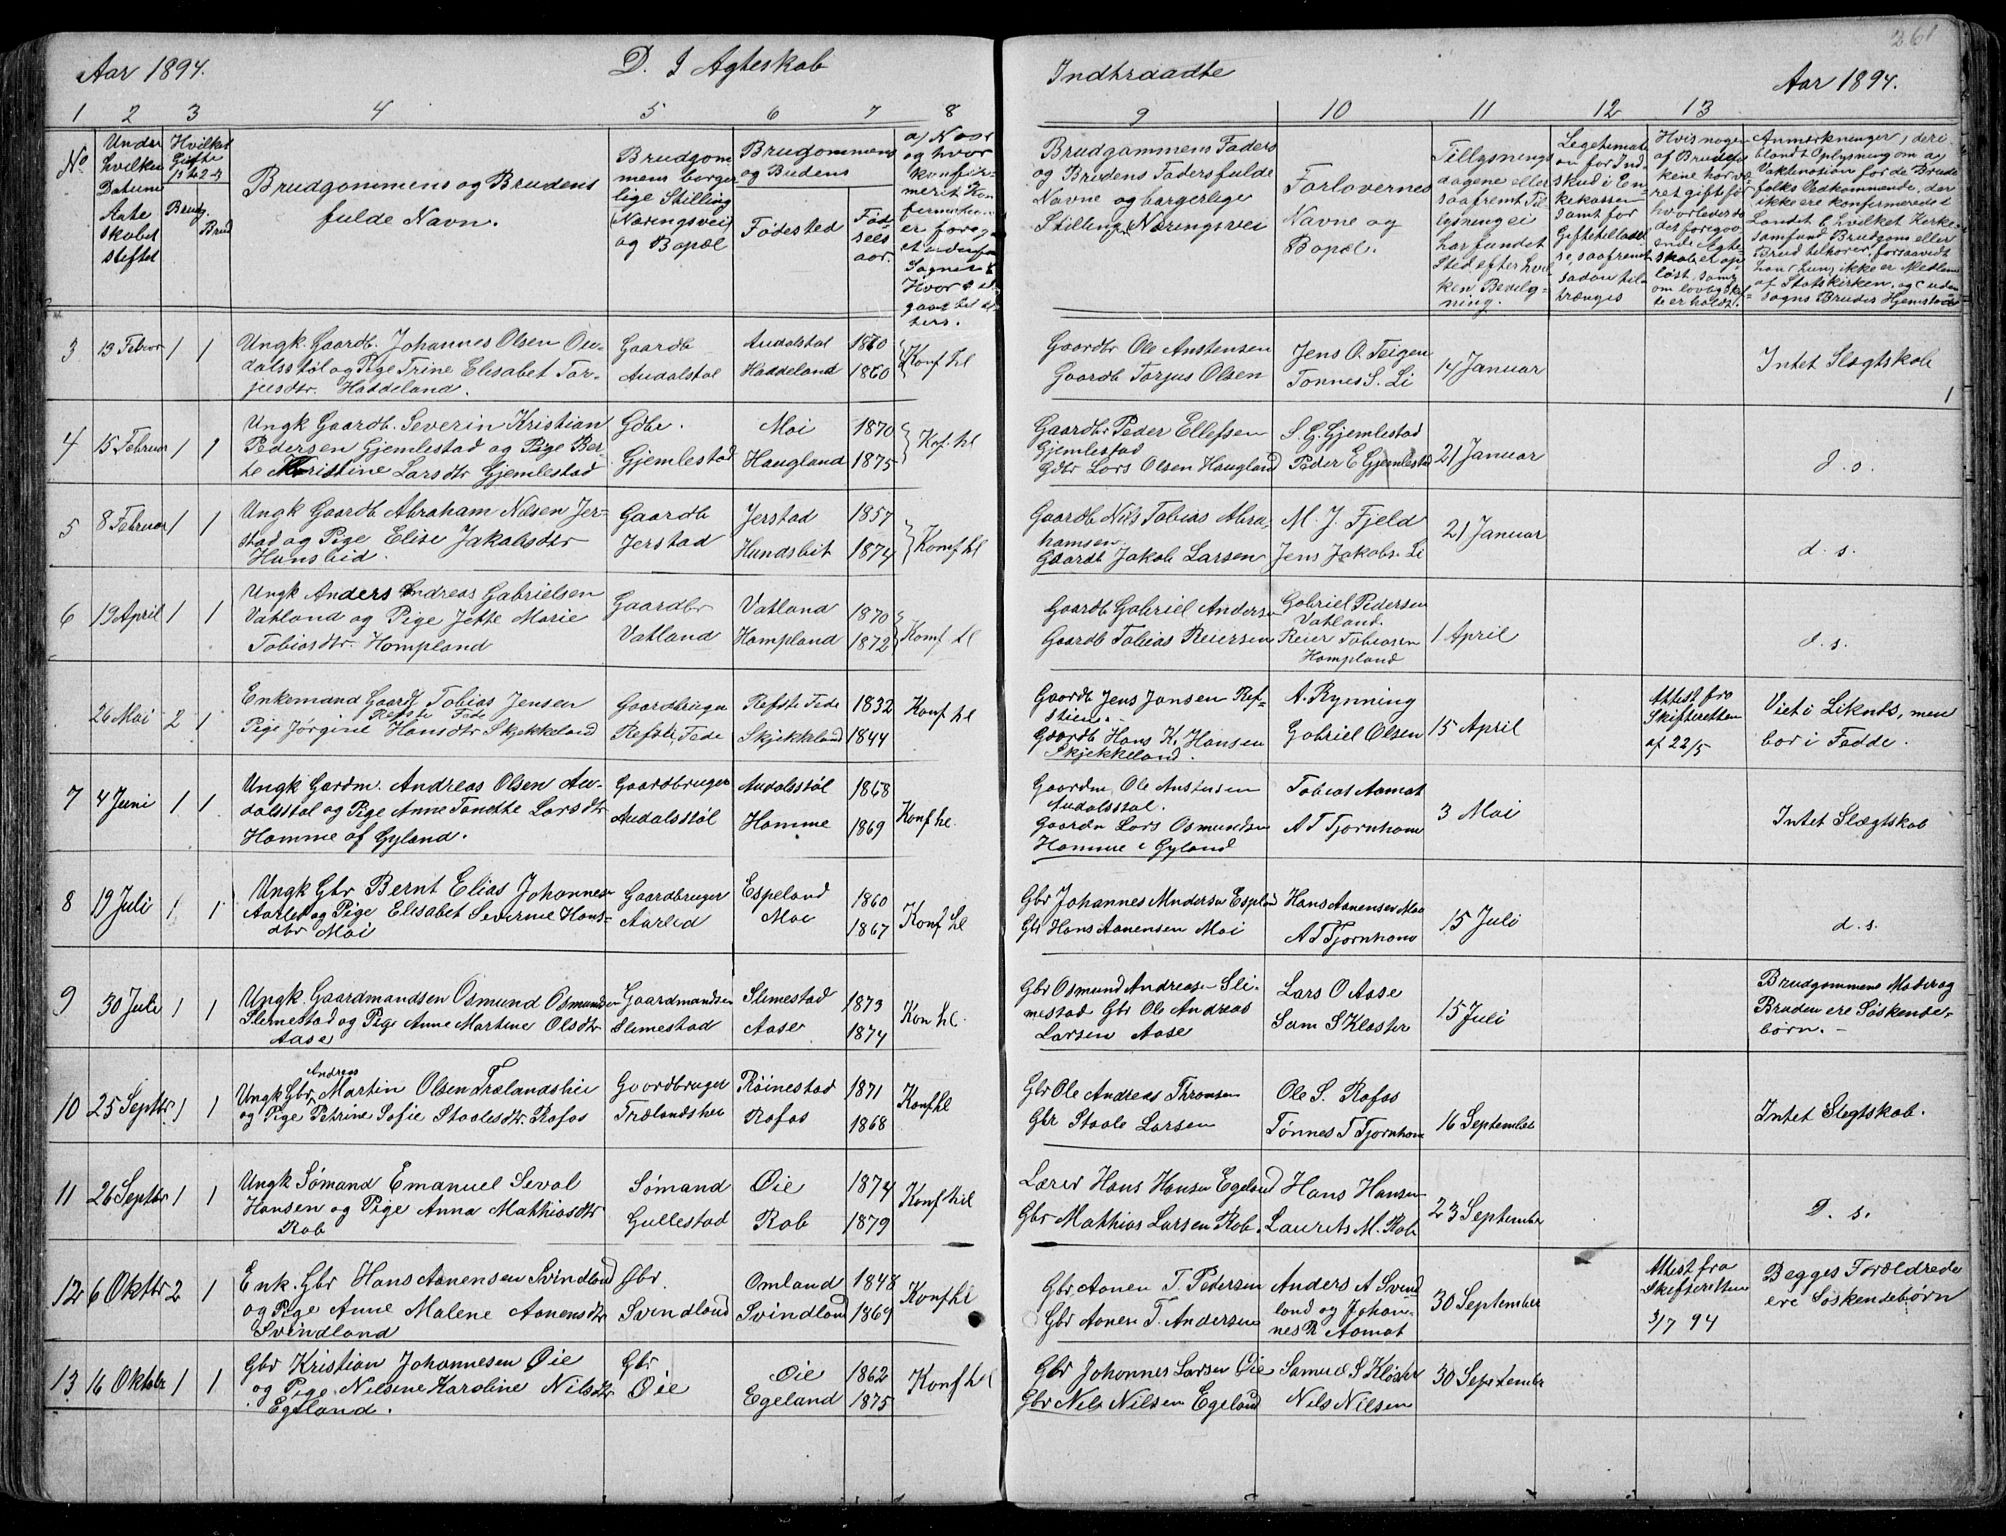 261
Aar 1894. D. I Agteskab Indtraadte Aar 1894.
1 2 3 4 5 6 7 8 9 10 11 12 13
No
Under
hvilken
Datum
Ægte
skabet
stiftet
Hvilket
Gifte
Brudg.
Brud
Brudgommens og Brudens
fulde Navn.
Brudgom
mens borger
lige Stilling
Næringsvei
og Bopæl
Brudgommens
og Brudens
Fødested
Fød-
sels
aar.
Brudgommens Faders
og Brudens Faders fulde
Navne og borgerlige
Stilling, Næringsvei
Forlovernes
Navne og
Bopæl.
Tillysnings
dagene eller
saafremt Til
lysning ei
har fundet
Sted efter hvil
ken Bevilg-
ning.
3 13 Februar 1 1
Ungk. Gaardb. Johannes Olsen Au-
dalsstøl og Pige Trine Elisabet Tor-
jusdtr. Haddeland.
Gaardb
Audalstøl
Audalstøl 1870
Haddeland 1860
Konf hl
Gaardbr Ole Anstensen
Gaardb Torjus Olsen
Jens O. Teigen
Tønnes S. Li
14 Januar
Intet Slægtskab
4 15 Februar 1 1
Ungk Gaardb. Severin Kristian
Pedersen Gjemlestad og Pige Ber-
te Kristine Larsdtr Gjemlestad
Gdbr.
Gjemlestad
Moi 1870
Haugland 1875
Kof. hl
Gaardbr Peder Ellefsen
Gjemlestad
Gdbr Lars Olsen Haugland
S. G. Gjemlestad
Peder E Gjemlestad
21 Januar
d. o.
5 8 Februar 1 1
Ungk Gaardb Abraham Nilsen Jer-
stad og Pige Elise Jakobsdtr
Hunsbeid.
Gaardb
Jerstad
Jerstad 1857
Hundsbeit 1874
Konf hl
Gaardb Nils Tobias Abra-
hamsen.
Gaardb Jakob Larsen
M. J. Fjeld
Jens Jakobs. Li
21 Januar
d. s.
6 19 April 1 1
Ungk Anders Andreas Gabrielsen
Vatland og Pige Jette Marie
Tobiasdtr. Hompland
Gaardbr
Vatland
Vatland 1870
Hompland 1872
Konf hl
Gaardb Gabriel Andersen
Gaardb Tobias Reiersen
Gabriel Pedersen
Vatland.
Reier Tobiasen
Hompland
1 April
d. s.
26 Mai 2 1
Enkemand Gaardb Tobias Jensen
Refsti Fede
Pige Jørgine Hansdtr Skjekkeland
Gaardbruger
Refsti, Fede
Refsti Fede 1832
Skjekkeland 1844
Konf hl
Gaardb Jens Jansen Ref-
stien.
Gaardb Hans K. Hansen
Skjekkeland.
A. Rynning
Gabriel Olsen
15 April
Attest fra
Skifteretten
af 22/5
Viet i Liknes, men
bor i Fedde.
7 4 Juni 1 1
Ungk Gardm. Andreas Olsen Au-
dalsstøl og Pige Anne Tonette Larsdtr
Homme af Gyland.
Gaardbruger
Audalsstøl
Audalsstøl 1868
Homme 1869
Konf hl.
Gaardm. Ole Anstensen
Audalsstøl.
Gaardm Lars Osmundsen
Homme i Gyland
Tobias Aamot
A T Tjørnhom
3 Mai
Intet Slægtskab
8 19 Juli 1 1
Ungk Gbr Bernt Elias Johannes-
Aarlid og Pige Elisabet Severine Hans-
dtr Moi
Gaardbruger
Aarlid
Espeland 1860
Moi 1867
Konf hl
Gbr Johannes Andersen Espeland
Gbr Hans Aanensen Moi
Hans Aanensen Moi
A T Tjørnhom
15 Juli
d. s.
9 30 Juli 1 1
Ungk. Gaardmandsøn Osmund Osmundsen
Slimestad og Pige Anne Martine Olsdtr
Aase
Gaardmandsøn
Slimestad
Slimestad 1873
Aase 1874
Kon hl.
Gbr Osmund Andreasen Sli-
mestad Gbr Ole Andreas
Larsen Aase
Lars O Aase
Sam S Kloster
15 Juli
Brudgommens Moder og
Bruden ere Søskende-
børn.
10 25 Septbr 1 1
Andreas
Ungk Gbr. Martin Olsen Trælandshei
og Pige Petrine Sofie Staalesdtr. Rafos
Gaardbruger
Trælandshei
Røinestad 1871
Rafos 1868
Konf hl
Gbr Ole Andreas Thronsen
Gbr Staale Larsen
Ole S. Rafos
Tønnes T Tjørnhom
16 September
Intet Slegtskab.
11 26 Septbr 1 1
Ungk Sømand Emanuel Seval
Hansen og Pige Anna Mathiasdtr
Rob
Sømand
Gullestad
Øie 1874
Rob 1879
Konf hl
Lærer Hans Hansen Egeland
Gbr Mathias Larsen Rob.
Hans Hansen
Laurits M. Rob
23 September
D. s.
12 6 Oktbr 2 1
Enk. Gbr Hans Aanensen Svindland
og Pige Anne Malene Aanensdtr
Svindland
Gbr.
Svindland
Omland 1848
Svindland 1869
Konf hl
Gbr Aanen T. Pedersen
Gbr Aanen T. Andersen
Anders A Svind
land og Johan-
nes P Aamot
30 September
Attest fra
Skifteretten
3/7 94
Begges Forældre
ere Søskendebørn
13 16 Oktober 1 1
Gbr Kristian Johannesen Øie
og Pige Nilsine Karoline Nilsdtr
Egeland.
Gbr
Øie
Øie 1862
Egeland 1875
Konf hl
Gbr Johannes Larsen Øie
Gbr Nils Nilsen Egeland
Samuel S Kloster
Nils Nilsen
30 September